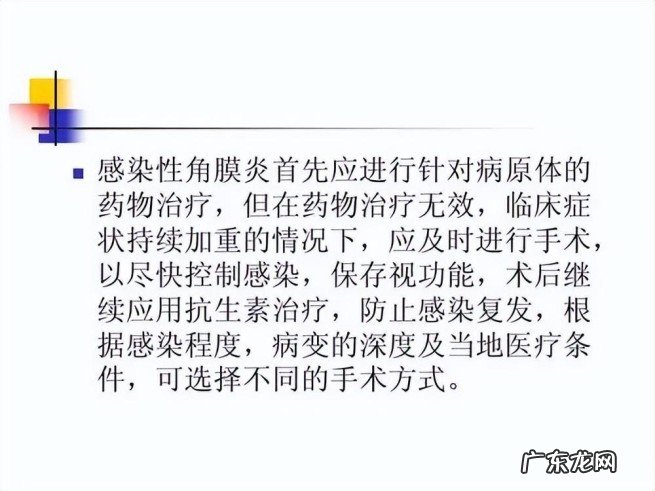 感染性角膜炎首先应进行针对病原体的
药物治疗，但在药物治疗无效，临床症
状持续加重的情况下，应及时进行手术，
以尽快控制感染，保存视功能，术后继
续应用抗生素治疗，防止感染复发，根
据感染程度，病变的深度及当地医疗条
件，可选择不同的手术方式。
广东龙网